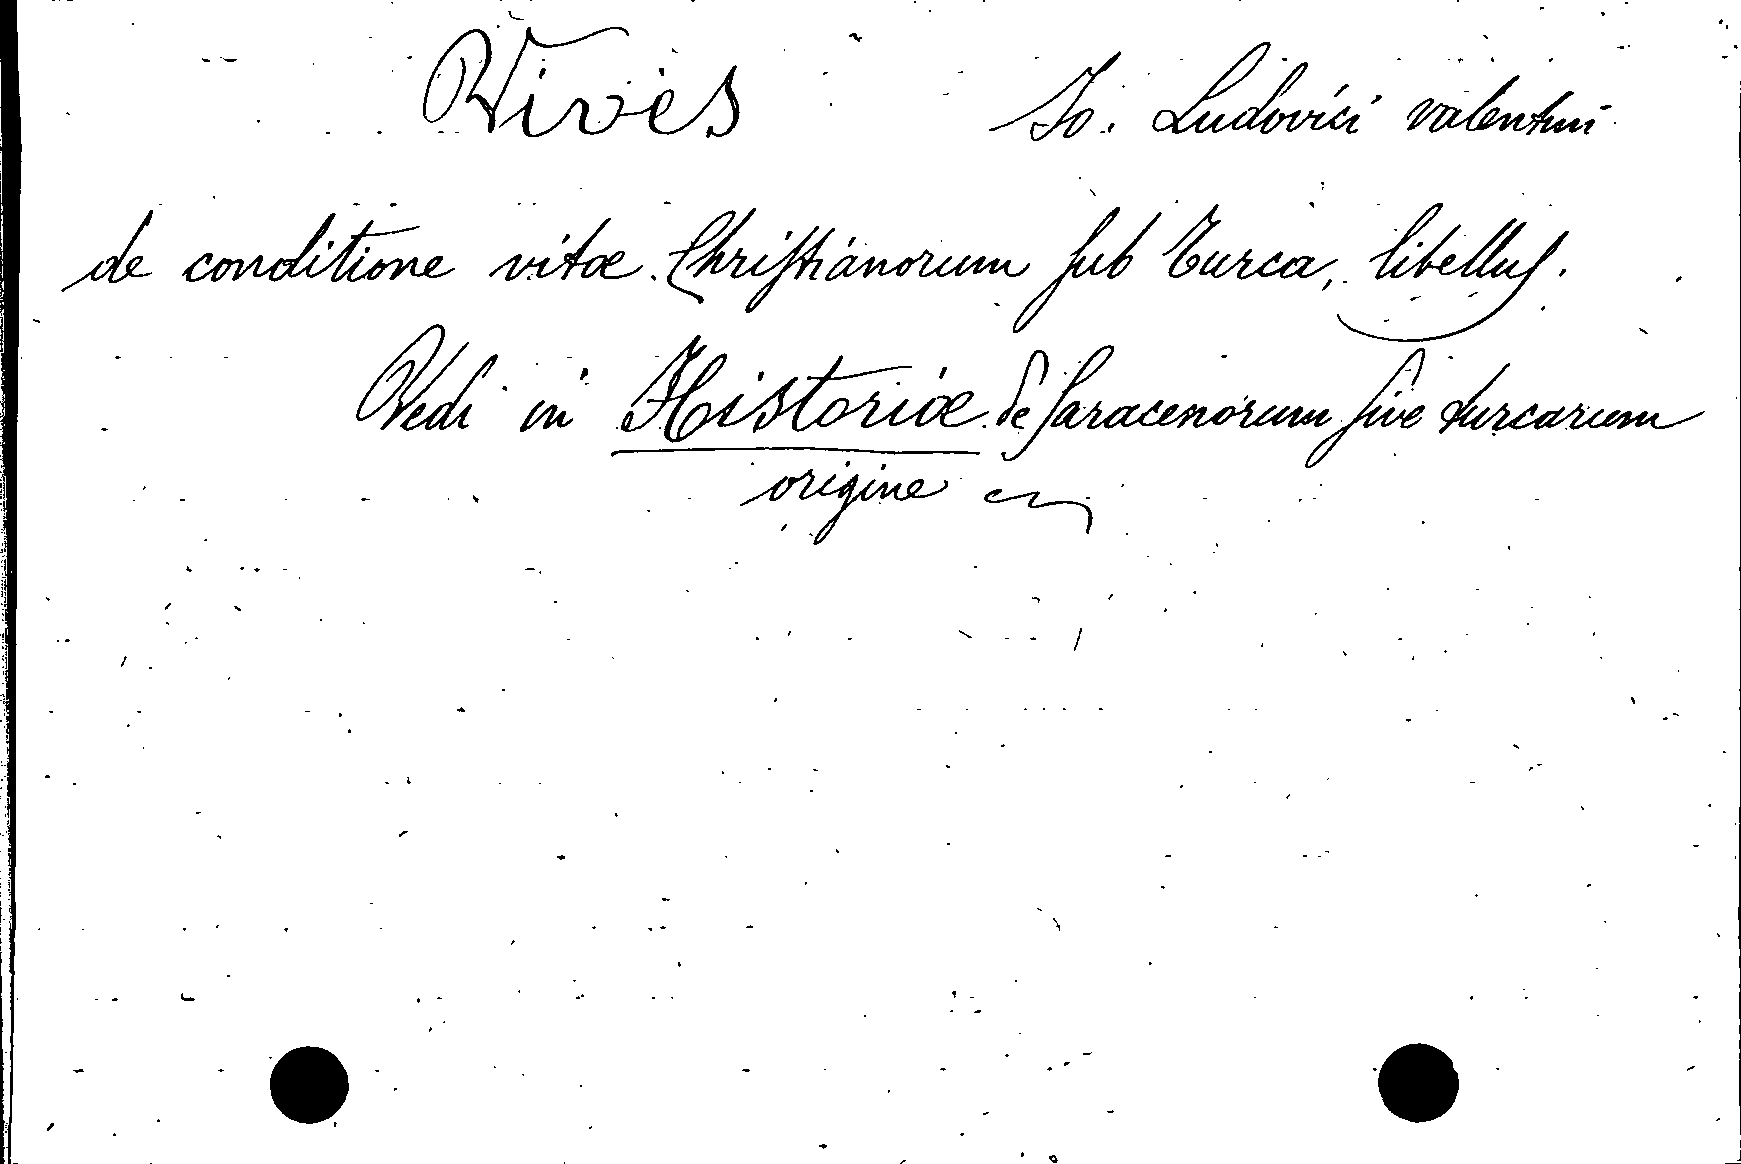 Vives Io. Ludovici valentini
de conditione vitæ Chriſtianorum ſub Turca, libelluſ.
Vedi in Historiæ de ſaracenorum ſive turcarum
origine